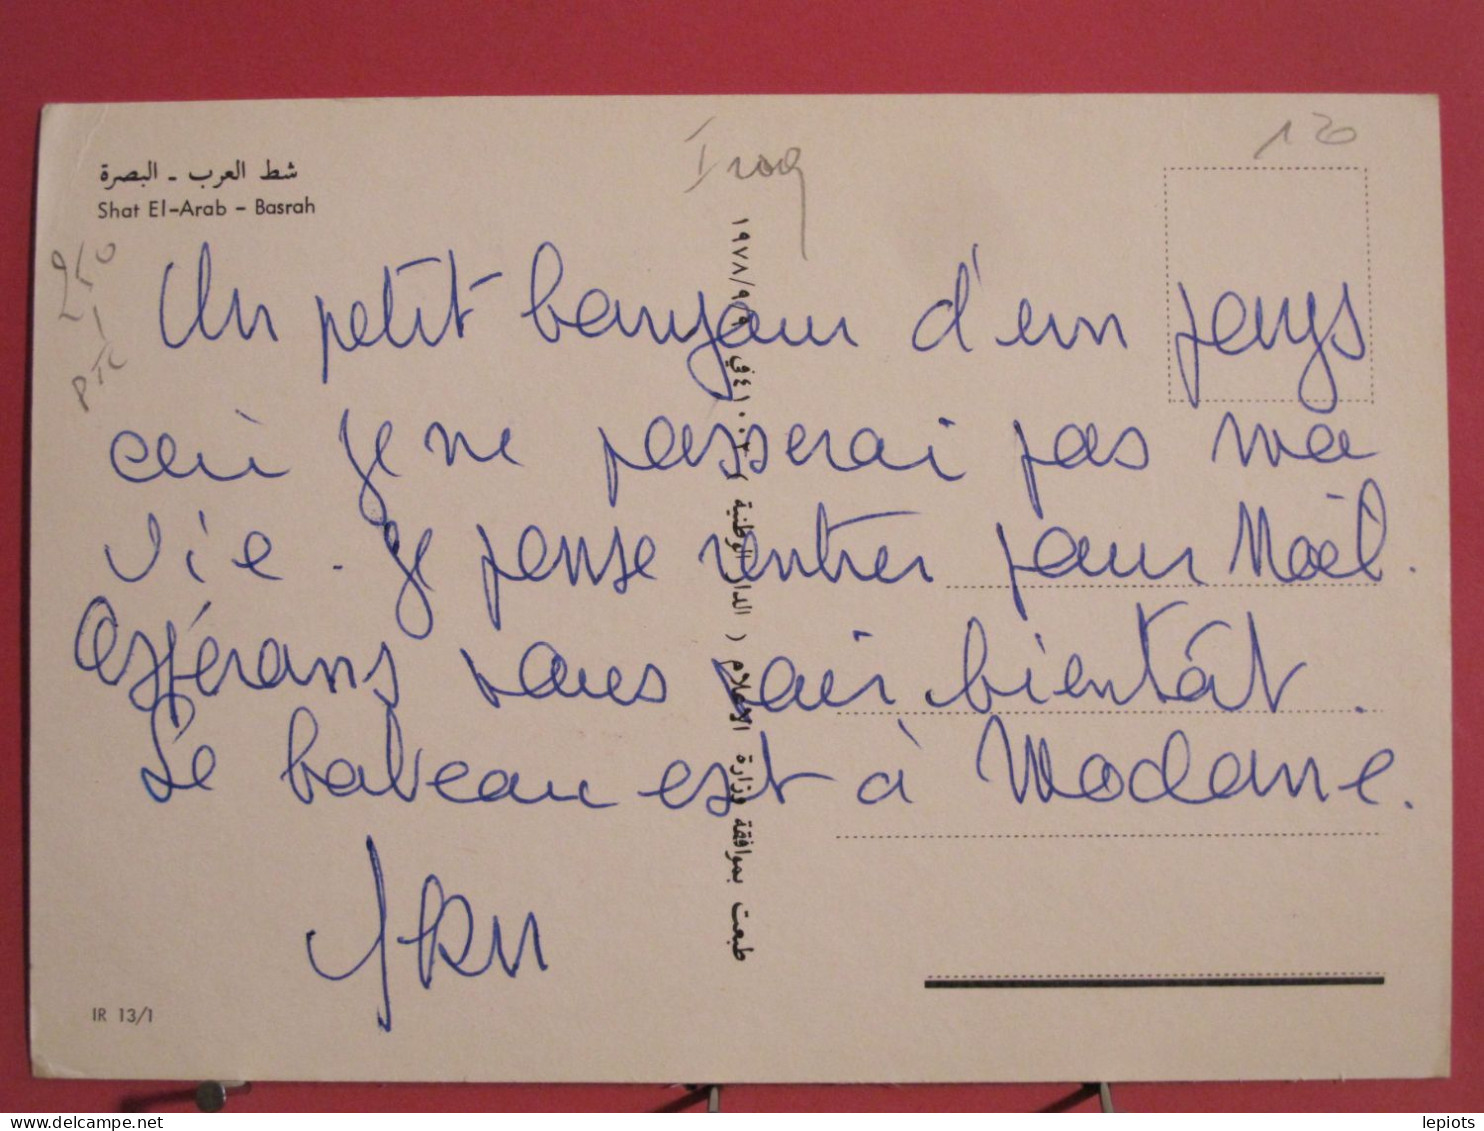 شط العرب - البصرة
Shat El-Arab - Basrah
Iraq
120
250
Un petit bonjour d'un pays
où je ne passerai pas ma
vie. Je pense rentrer pour Noël.
Espérons vous voir bientôt.
Le bateau est à Modane.
IR 13/1
طبعت بموافقة وزارة الاعلام ( الدار الوطنية ) ٤١٠٠٢ في ١٩٧٨/٩/٩
lepiots